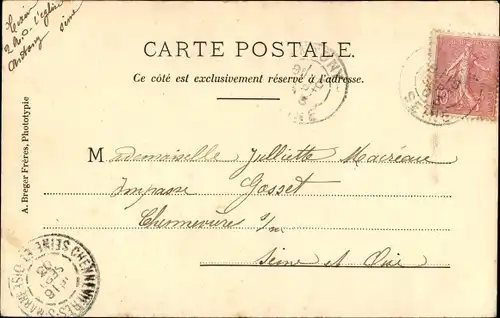 CARTE POSTALE.
Ce côté est exclusivement réservé à l'adresse.
A. Breger Frères, Phototypie
Mademoiselle Julliette Mairéau
Impasse Gosset
Chennevières s/m
Seine et Oise
CHENNEVIÈRES-S-MARNE SEINE-ET-OISE